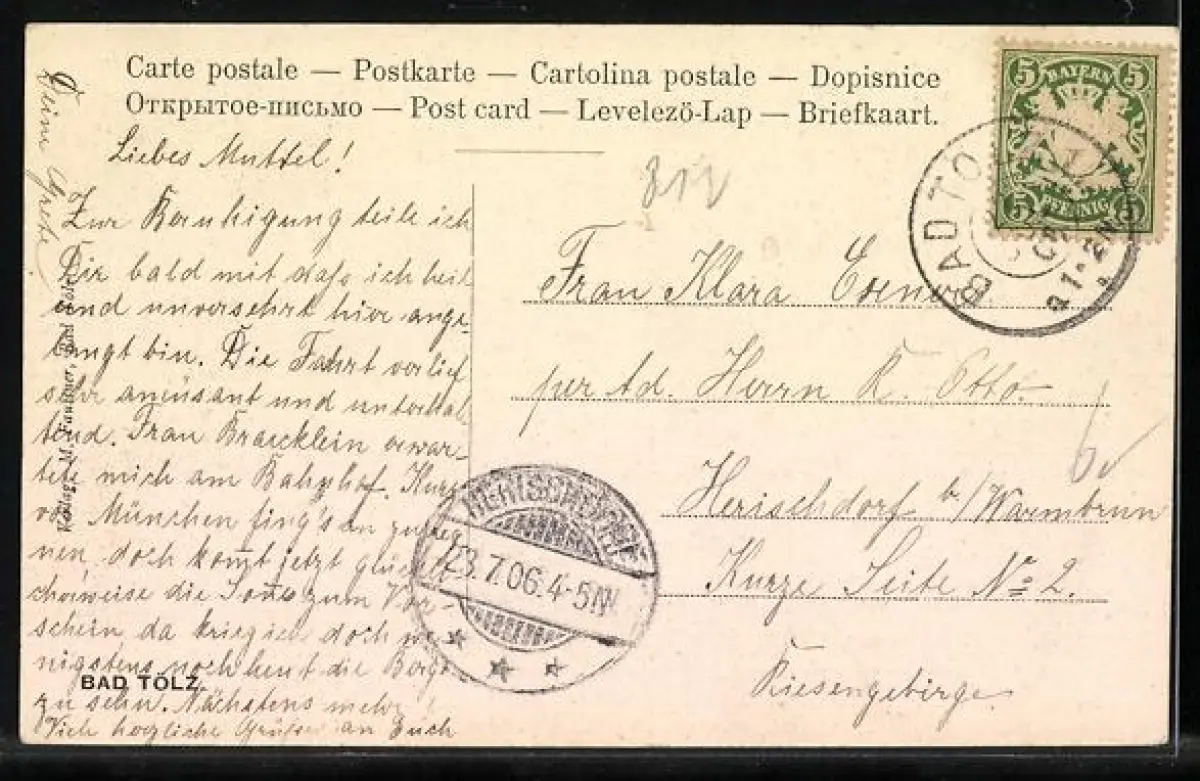 Carte postale — Postkarte — Cartolina postale — Dopisnice
Открытое-письмо — Post card — Levelezö-Lap — Briefkaart.
Liebes Muttel!
Zur Beruhigung teile ich
Dir bald mit dass ich heil
und unversehrt hier ange-
langt bin. Die Fahrt verlief
sehr amüsant und unterhal-
tend. Frau Braecklein erwar-
tete mich am Bahnhof. Kurz
vor München fing's an zu reg-
nen, doch kom̄t jetzt glückli-
cherweise die Sonne zum Vor-
schein da krieg ich doch we-
nigstens noch heut die Berge
zu sehn. Nächstens mehr!
Viele herzliche Grüße an Euch
Deine Grete
Verlag M.
BAD TÖLZ
BAYERN
5 5
PFENNIG
5 5
BAD TÖLZ
HERISCHDORF
23.7.06.4-5N
Frau Klara
per Ad. Herrn R. Otto.
Herischdorf b/Warmbrunn
Kurze Seite No 2.
Riesengebirge.